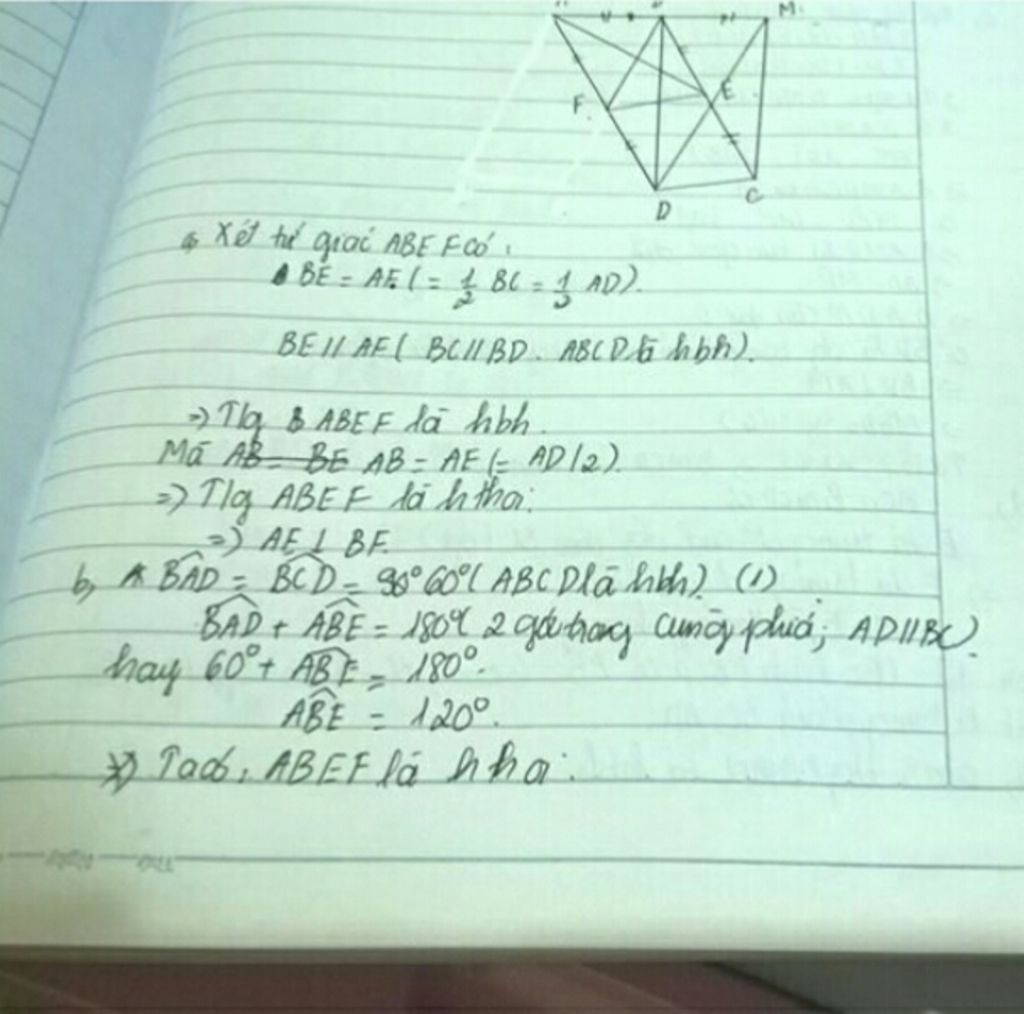 M
F
E
D
C
a, Xét tứ giác ABEF có:
BE = AF (= 1/2 BC = 1/2 AD).
BE // AF ( BC // BD. ABCD là hbh).
=> T/g ABEF là hbh.
Mà AB = BE AB = AF (= AD/2).
=> T/g ABEF là hthoi.
=> AE ⊥ BF.
b, BAD = BCD = 60° (ABCD là hbh). (1)
BAD + ABE = 180° ( 2 góc trong cùng phía; AD//BC).
hay 60° + ABE = 180°.
ABE = 120°.
Ta có, ABEF là hthoi.